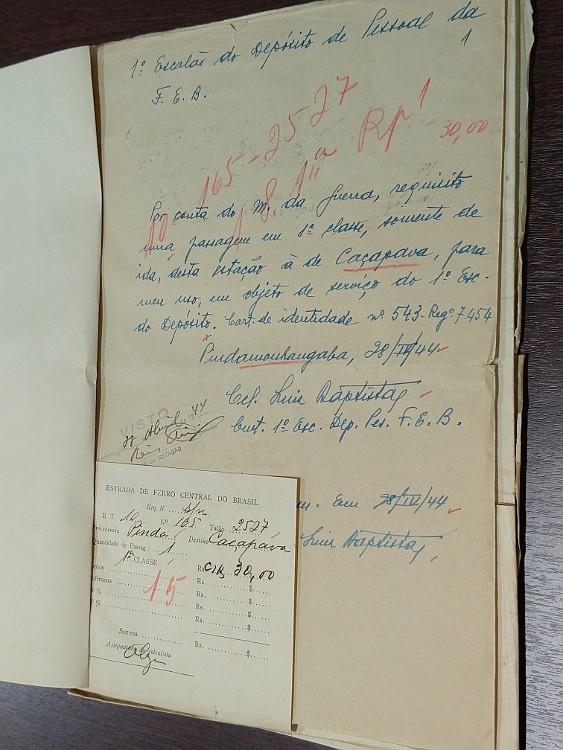 1º Escalão do Depósito de Pessoal da
F. E. B.
1
165-2527
1ª
30,00
Por conta do M. da Guerra, requisito
uma passagem em 1ª classe, somente de
ida, desta estação à de Caçapava, para
meu uso, em objeto de serviço do 1º Esc.
do Depósito. Cart. de identidade nº 543. Regº 7454
Pindamonhangaba, 28/IV/44
Cel. Luiz Baptista
Cmt. 1º Esc. Dep. Pes. F. E. B.
VISTO
ESTAÇÃO
Em 28/IV/44
Luiz Baptista
ESTRADA DE FERRO CENTRAL DO BRASIL
Req. N. s/n
B. T. 10 Nº 165 Talão 2527
Pinda Destino Caçapava
Quantidade de Passag. 1
1ª CLASSE Rs. Cr$ 30,00
15
Rs. $
Rs. $
% Rs. $
% Rs. $
Somma
Rs. $